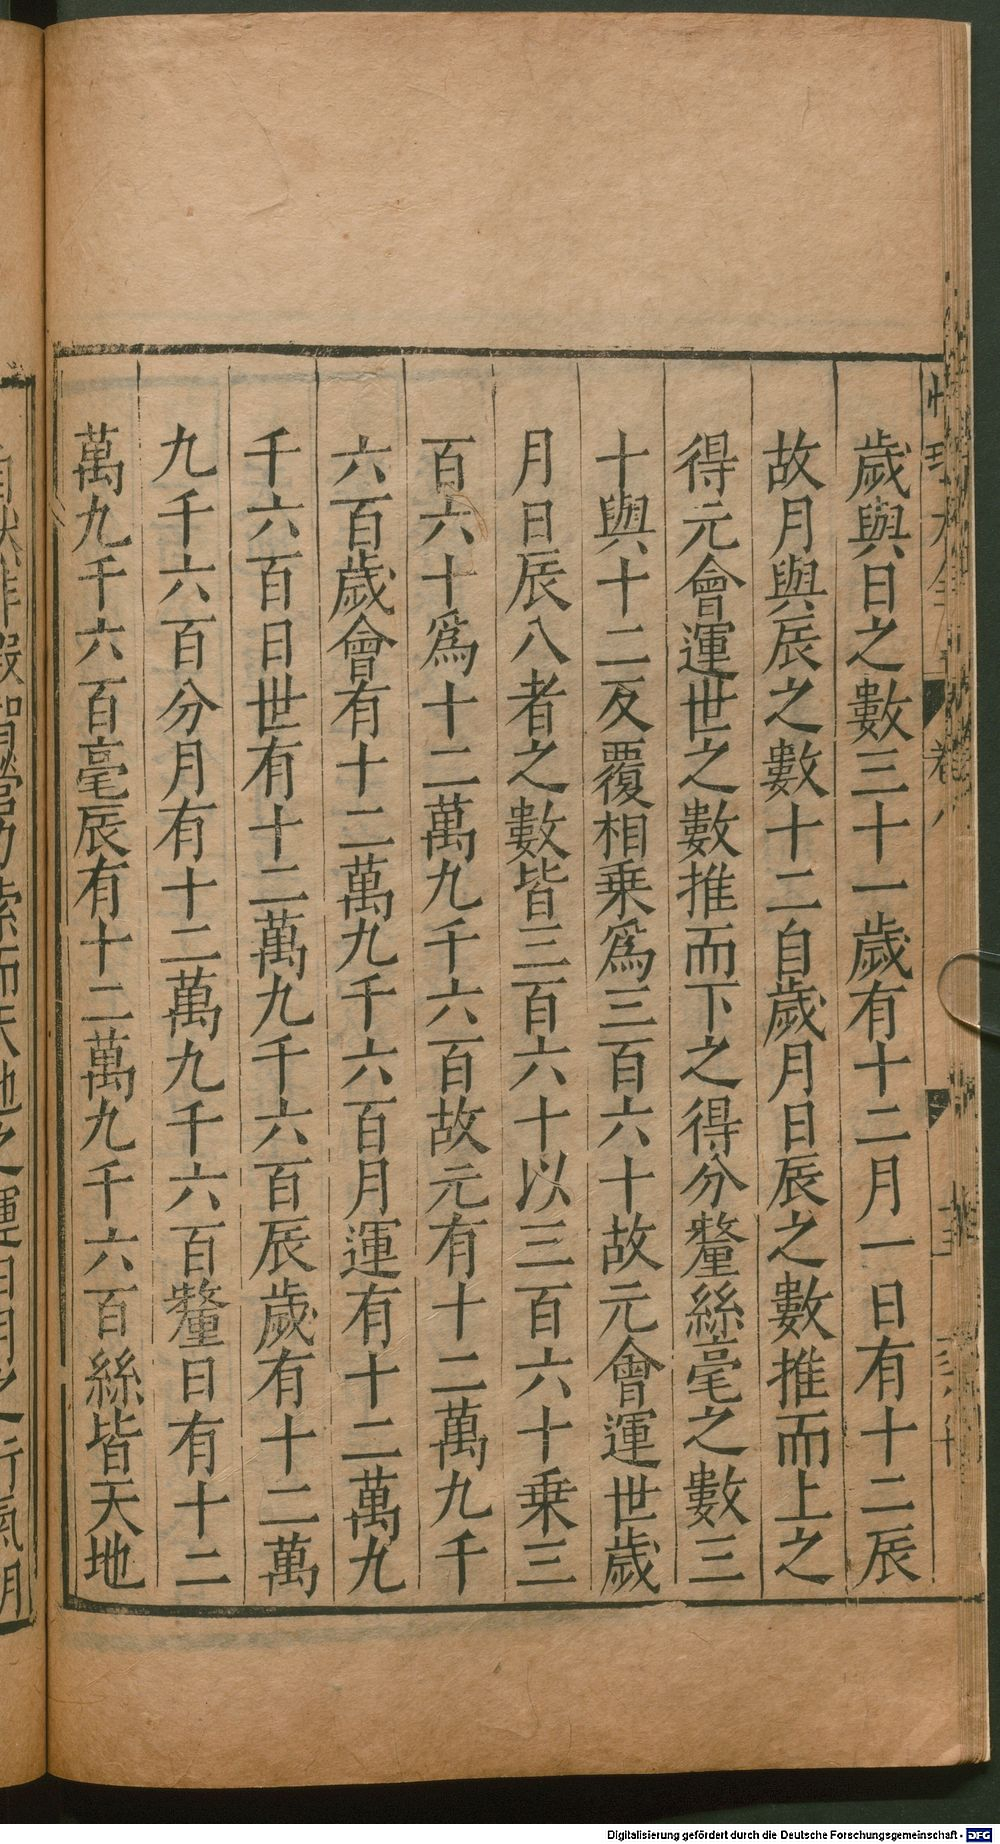 歲與日之數三十一歲有十二月一日有十二辰
故月與辰之數十二自歲月日辰之數推而上之
得元會運世之數推而下之得分釐絲毫之數三
十與十二反覆相乗爲三百六十故元會運世歲
月日辰八者之數皆三百六十以三百六十乗三
百六十爲十二萬九千六百故元有十二萬九千
六百歲會有十二萬九千六百月運有十二萬九
千六百日世有十二萬九千六百辰歲有十二萬
九千六百分月有十二萬九千六百釐日有十二
萬九千六百毫辰有十二萬九千六百絲皆天地
Digitalisierung gefördert durch die Deutsche Forschungsgemeinschaft - DFG